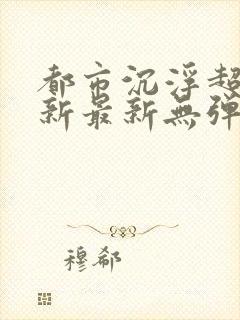 都市沉浮超
新最新無弹
穆郗